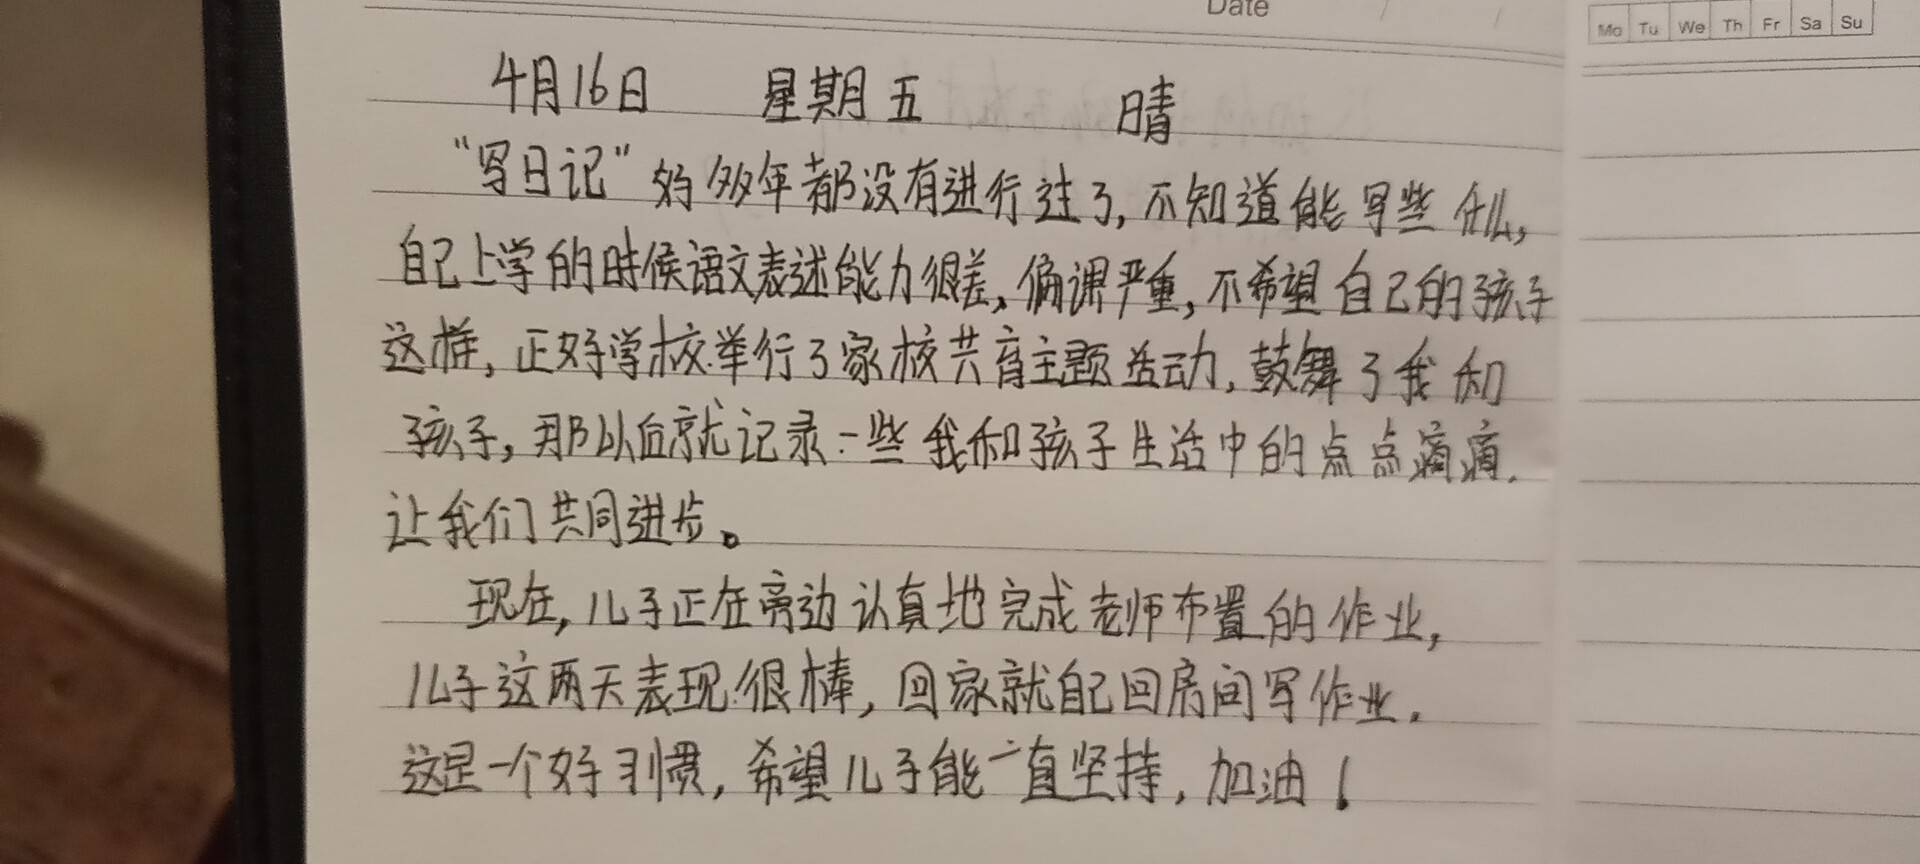 Date
Mo Tu We Th Fr Sa Su
4月16日 星期五 晴
“写日记”好多年都没有进行过了,不知道能写些什么,
自己上学的时候语文表述能力很差,偏课严重,不希望自己的孩子
这样,正好学校举行了家校共育主题活动,鼓舞了我和
孩子,那以后就记录一些我和孩子生活中的点点滴滴.
让我们共同进步。
现在,儿子正在旁边认真地完成老师布置的作业,
儿子这两天表现很棒,回家就自己回房间写作业.
这是一个好习惯,希望儿子能一直坚持,加油!